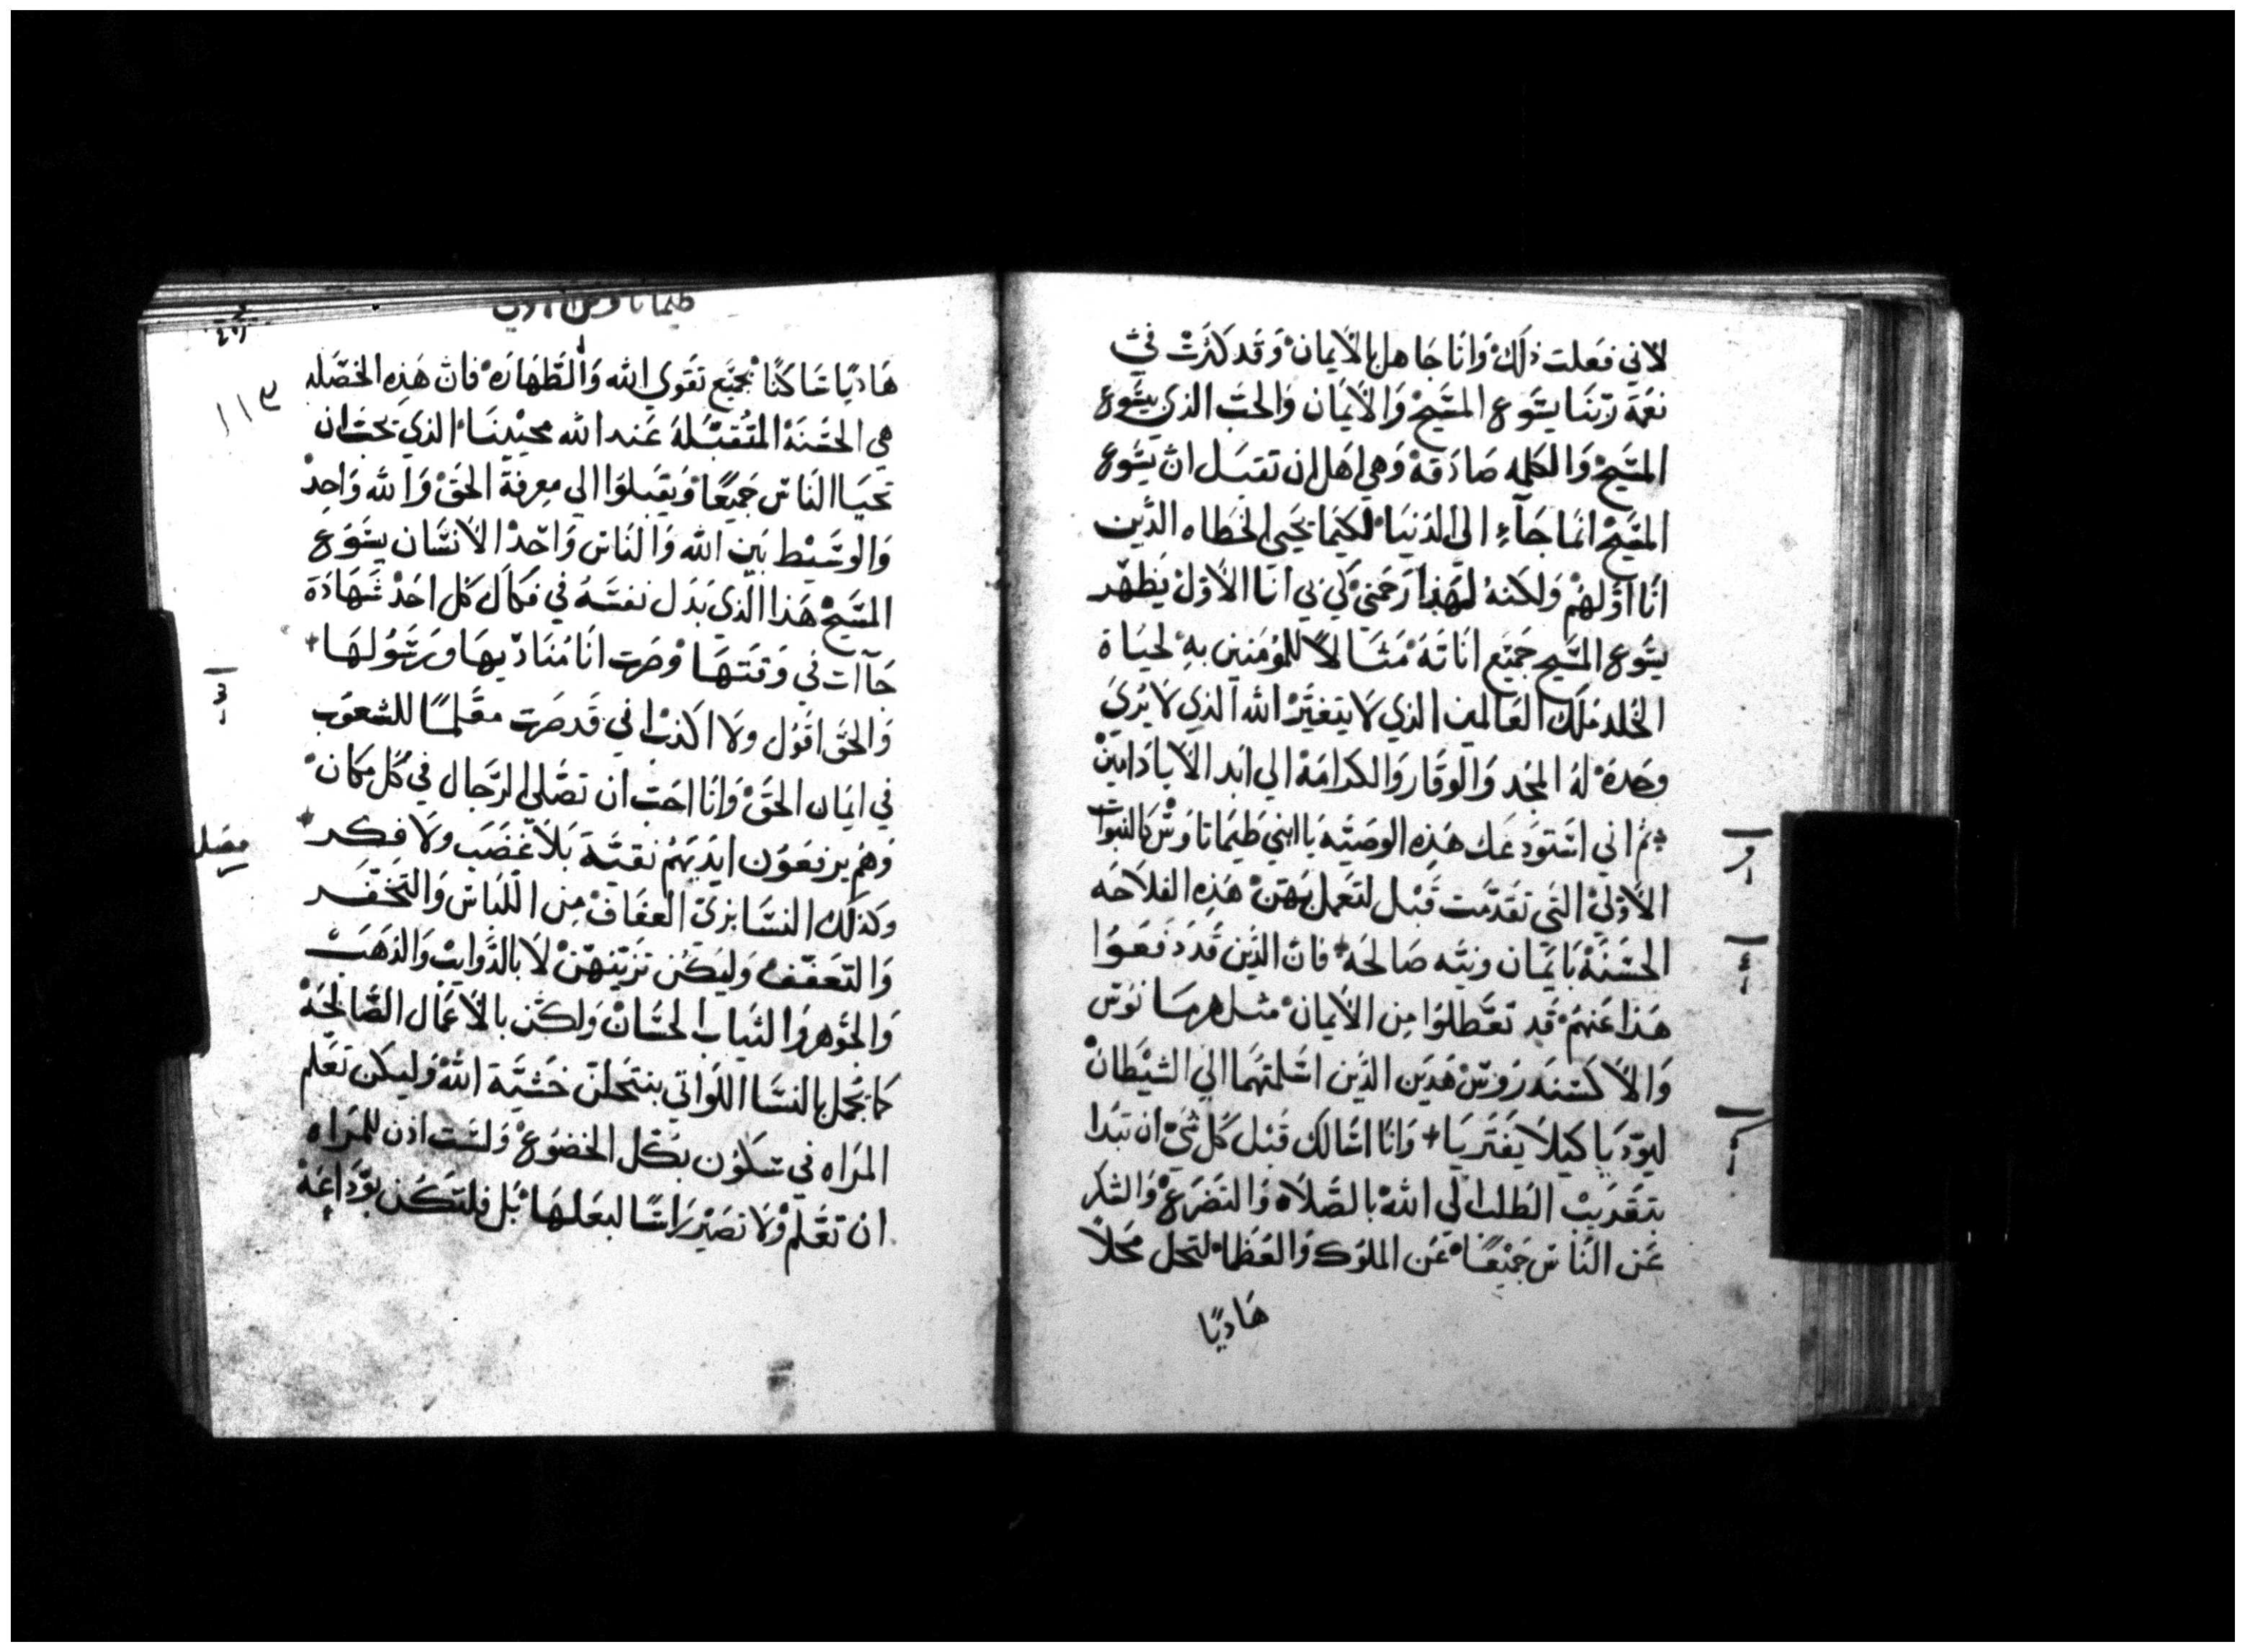 لاني فعلت ذلك وانا جاهل بالايمان وقد كثرت فيّ
نعمة ربنا يسوع المسيح والايمان والحب الذي بيسوع
المسيح والكلمه صادقة وهي اهل ان تقبل ان يسوع
المسيح انما جاء الى الدنيا لكيما يحيي الخطاه الذين
انا اولهم ولكنه لهذا رحمني كي بي انا الاول يظهر
يسوع المسيح جميع اناته مثالاً للمومنين به لحياة
الخلد ملك العالمين الذي لا يتغير الله الذي لا يرى
وحده له المجد والوقار والكرامة الي ابد الاباد امين
ثم اني استودعك هذه الوصيه يا ابني طيماتاوس بالنبوات
الاولي التي تقدمت قبل لتعمل بهن هذه الفلاحه
الحسنة بايمان ونيه صالحة فان الذين قد دفعوا
هذا عنهم قد تعطلوا من الايمان مثل هرمانوس
والاكسندروس هذين الذين اسلمتهما الي الشيطان
ليودبا كيلا يفتريا وانا اسالك قبل كل شي ان تبدا
بتقريب الطلب الي الله بالصلاه والتضرع والشكر
عن الناس جميعًا عن الملوك والعظما لتحل محلاً
هاديًا
طيماتاوس
١١٣
هاديًا ساكنًا بجميع تقوي الله والطهاره فان هذه الخصله
هي الحسنة المتقبله عند الله محيينا الذي يحب ان
تحيا الناس جميعًا ويقبلوا الي معرفة الحق والله واحد
والوسيط بين الله والناس واحد الانسان يسوع
المسيح هذا الذي بذل نفسه في فكاك كل احد شهادة
جاات في وقتها وصرت انا مناديها ورسولها
والحق اقول ولا اكذب اني قد صرت معلمًا للشعوب
في ايمان الحق وانا احب ان تصلي الرجال في كل مكان
وهم يرفعون ايديهم نقية بلا غضب ولا فكر
فصل
وكذلك النسا بزي العفاف من اللباس والتخفر
والتعفف وليكن تزينهن لا بالذوايب والذهب
والجوهر والثياب الحسان ولكن بالاعمال الصالحة
كما يجمل بالنسا اللواتي ينتحلن خشية الله وليكن تعلم
المراه في سكون بكل الخضوع ولست اذن للمراه
ان تعلم ولا تصير راسًا لبعلها بل فلتكن بوداعة